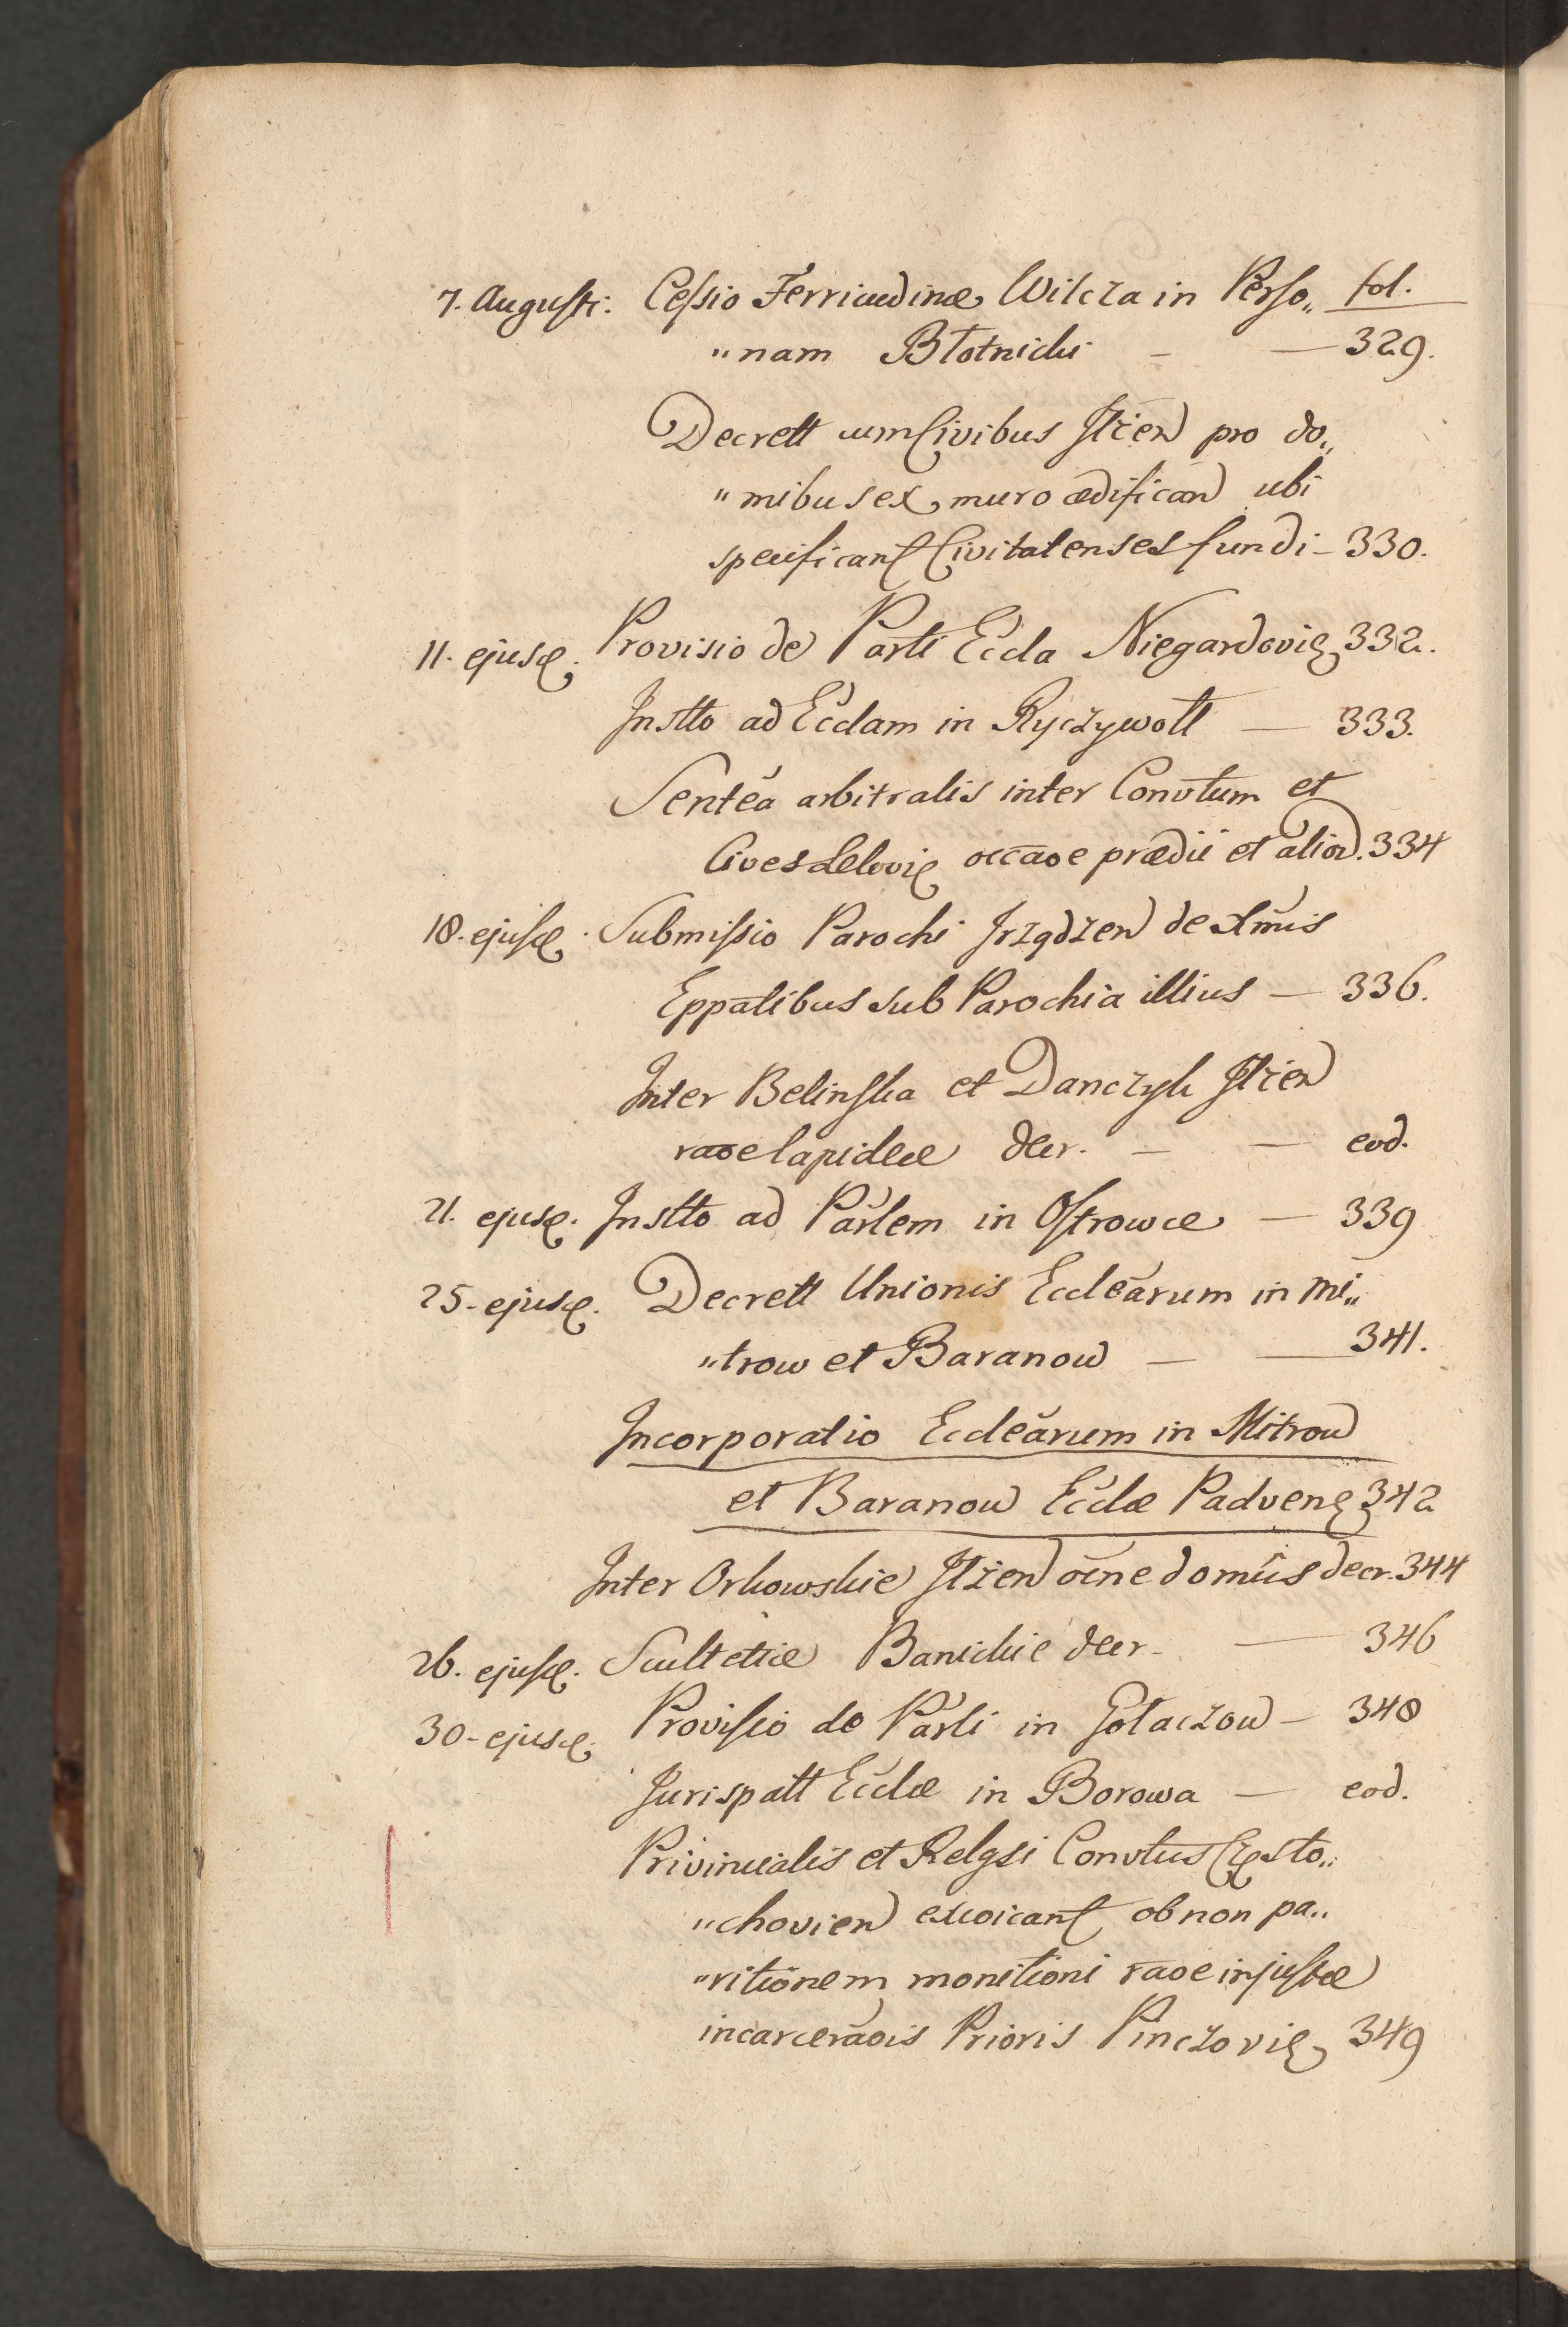 7. Augusti: Cessio Ferricudinæ Wilcza in Perso„ fol.
„nam Błotnicki - — 329.
Decrett cum Civibus Jłżen pro do„
„mibus ex muro ædifican̄d ubi
specifican̄t Civitatenses fundi - 330.
11. ejusd. Provisio de Parli Eccla Niegardovie 332.
Instto ad Ecclam in Ryczywoll — 333.
Sentéa arbitralis inter Convtum et
Cives Lelovie occāoe prædii et alior. 334
18. ejusd. Submissio Parochi Irządzen de Xmis
Eppalibus sub Parochia illius — 336.
Inter Belinska et Danczyk Jłżen
raōe lapideæ decr. - — eod.
21. ejusd. Instto ad Parlem in Ostrowce — 339
25. ejusd. Decrett Unionis Eccleārum in Mi„
„trow et Baranow — — 341.
Incorporatio Eccleārum in Mitrow
et Baranow Ecclæ Padvens 342
Inter Orkowskie Jłżen ōcne domûs decr. 344
26. ejusd. Scultetiæ Banickie decr. — 346
30. ejusd. Provisio de Parli in Gołaczow — 348
Jurispatt Ecclæ in Borowa — eod.
Privincialis et Relgsi Convtus Często„
„chovien excōican̄t ob non pa„
„ritionem monitioni raōe injustæ
incarcerāois Prioris Pinczovie 349